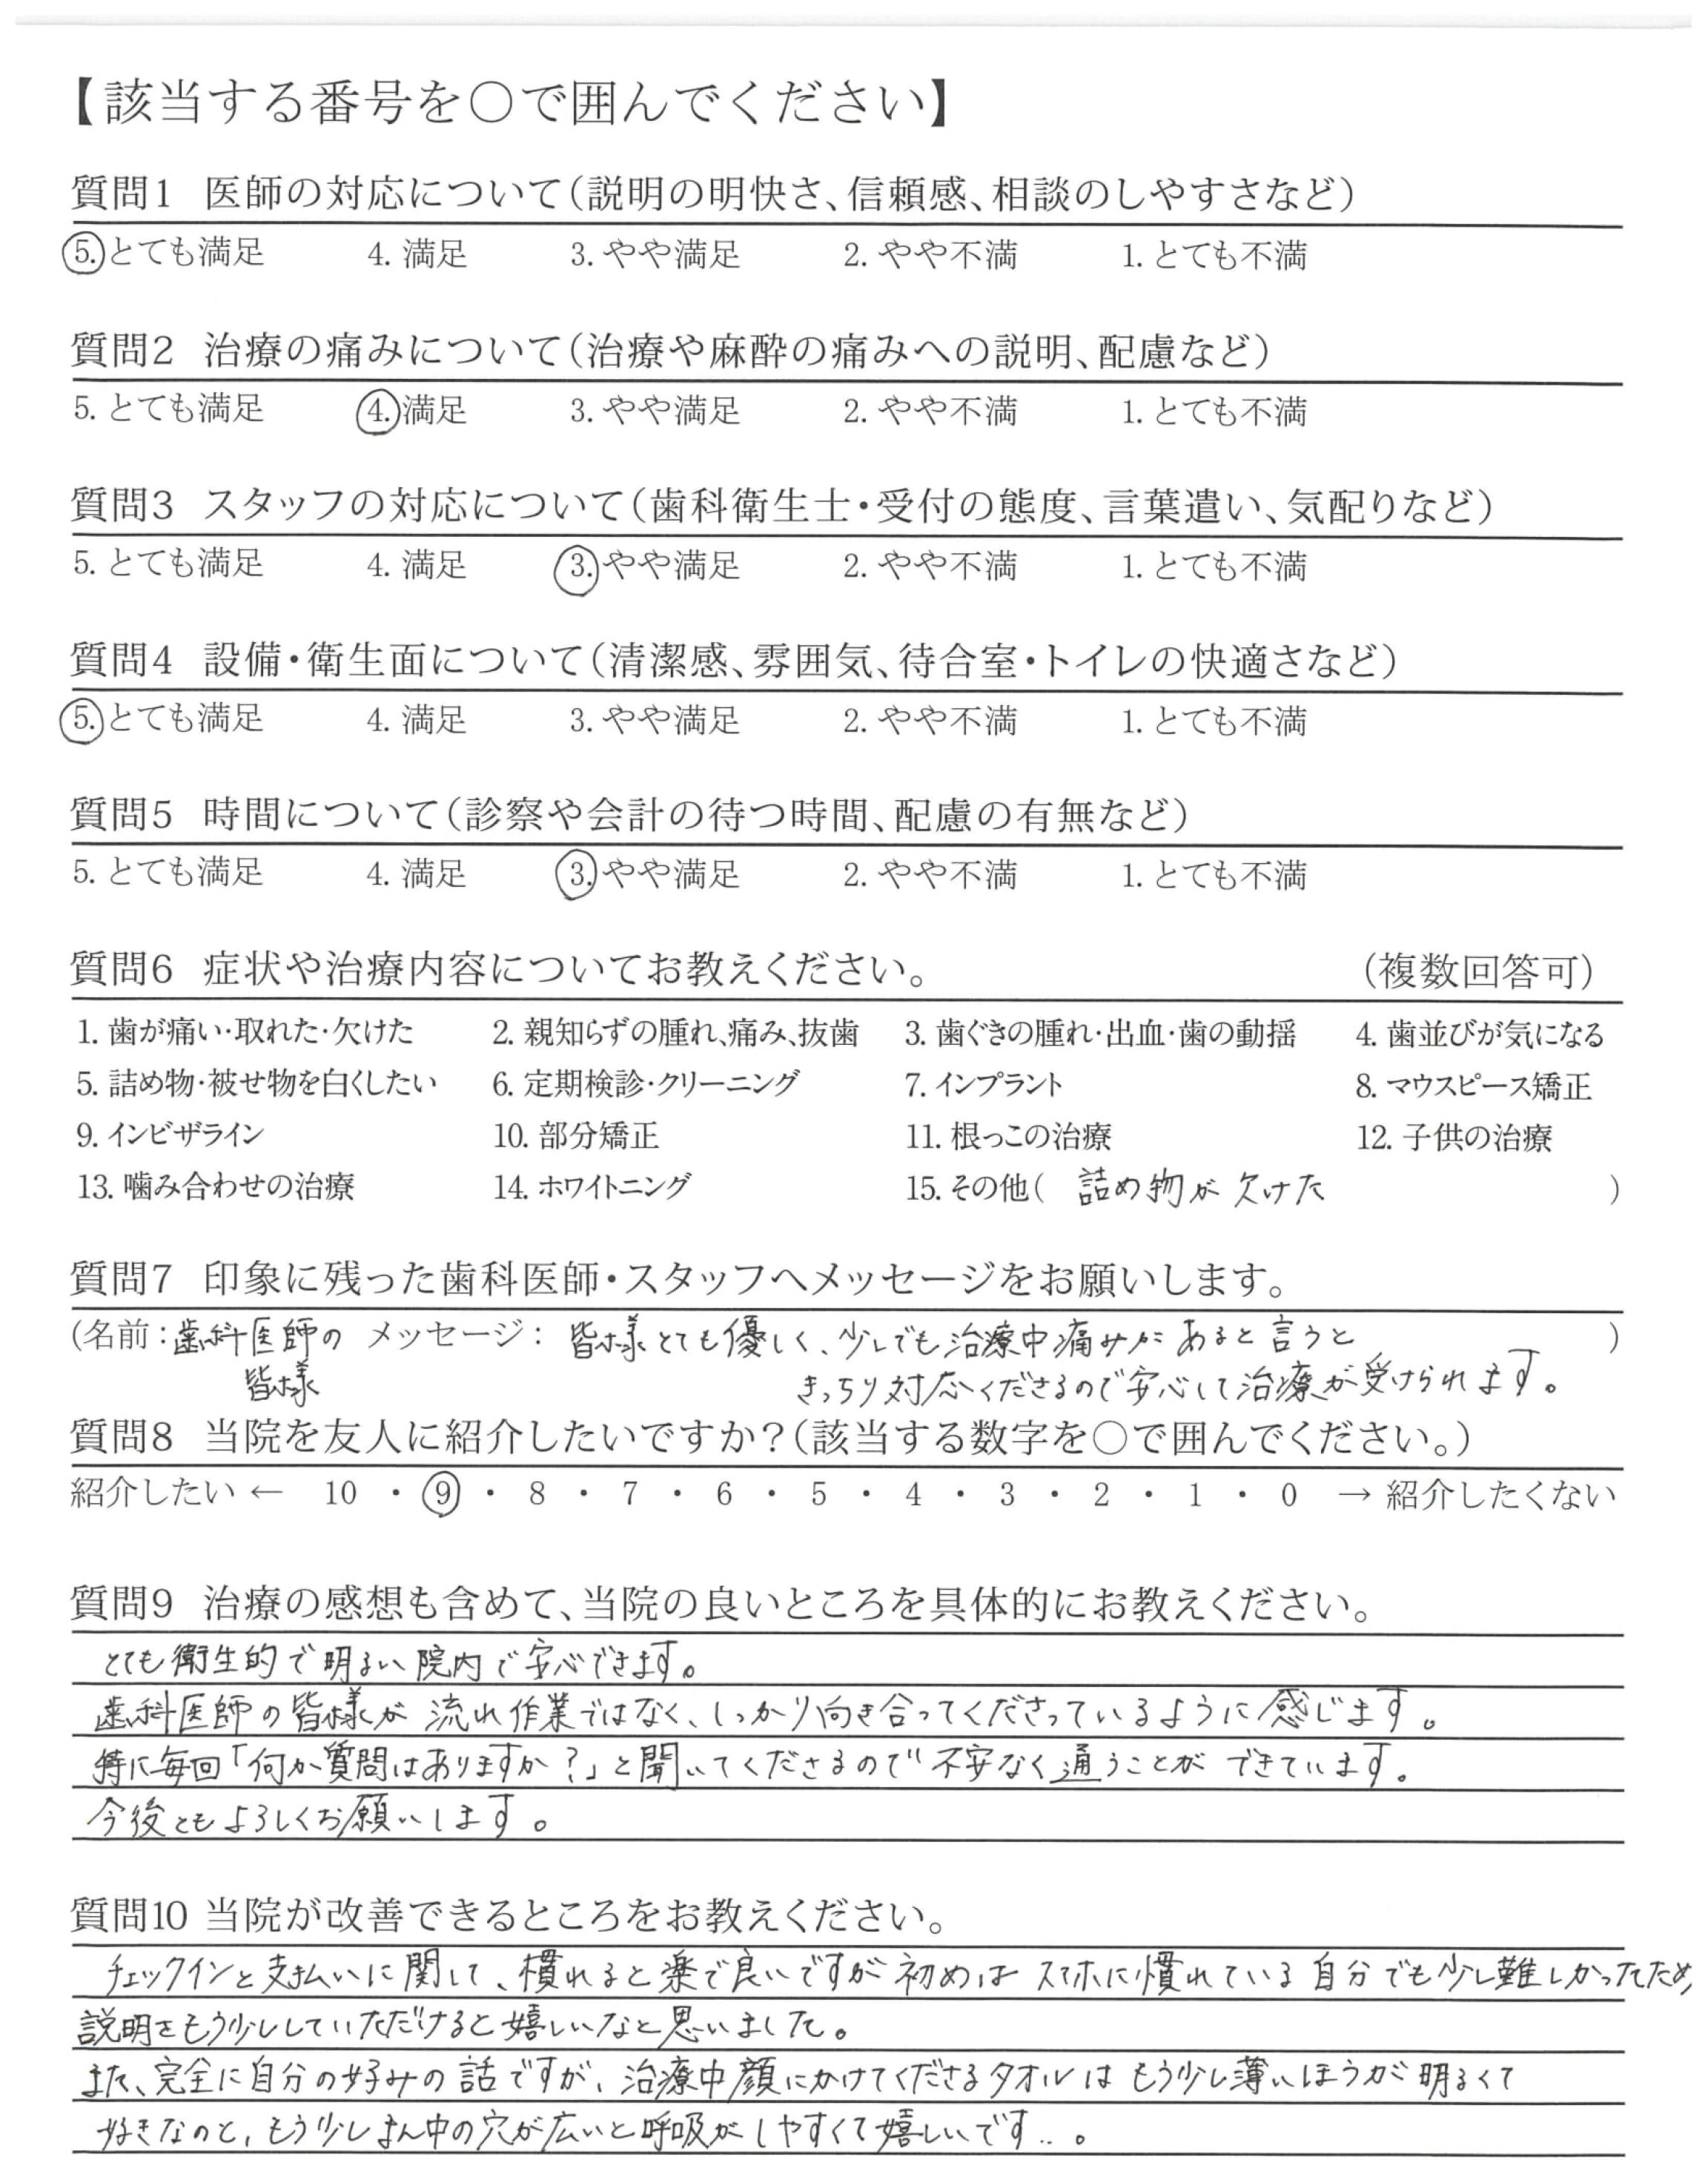 【該当する番号を〇で囲んでください】
質問1 医師の対応について(説明の明快さ、信頼感、相談のしやすさなど)
5. とても満足 4. 満足 3. やや満足 2. やや不満 1. とても不満
質問2 治療の痛みについて(治療や麻酔の痛みへの説明、配慮など)
5. とても満足 4. 満足 3. やや満足 2. やや不満 1. とても不満
質問3 スタッフの対応について(歯科衛生士・受付の態度、言葉遣い、気配りなど)
5. とても満足 4. 満足 3. やや満足 2. やや不満 1. とても不満
質問4 設備・衛生面について(清潔感、雰囲気、待合室・トイレの快適さなど)
5. とても満足 4. 満足 3. やや満足 2. やや不満 1. とても不満
質問5 時間について(診察や会計の待つ時間、配慮の有無など)
5. とても満足 4. 満足 3. やや満足 2. やや不満 1. とても不満
質問6 症状や治療内容についてお教えください。 (複数回答可)
1. 歯が痛い・取れた・欠けた 2. 親知らずの腫れ、痛み、抜歯 3. 歯ぐきの腫れ・出血・歯の動揺 4. 歯並びが気になる
5. 詰め物・被せ物を白くしたい 6. 定期検診・クリーニング 7. インプラント 8. マウスピース矯正
9. インビザライン 10. 部分矯正 11. 根っこの治療 12. 子供の治療
13. 噛み合わせの治療 14. ホワイトニング 15. その他( 詰め物が欠けた )
質問7 印象に残った歯科医師・スタッフへメッセージをお願いします。
(名前：歯科医師の メッセージ： 皆様とても優しく、少しでも治療中痛みがあると言うと )
皆様 きっちり対応くださるので安心して治療が受けられます。
質問8 当院を友人に紹介したいですか？(該当する数字を〇で囲んでください。)
紹介したい ← 10 ・ 9 ・ 8 ・ 7 ・ 6 ・ 5 ・ 4 ・ 3 ・ 2 ・ 1 ・ 0 → 紹介したくない
質問9 治療の感想も含めて、当院の良いところを具体的にお教えください。
とても衛生的で明るい院内で安心できます。
歯科医師の皆様が流れ作業ではなく、しっかり向き合ってくださっているように感じます。
特に毎回「何か質問はありますか？」と聞いてくださるので不安なく通うことができています。
今後ともよろしくお願いします。
質問10 当院が改善できるところをお教えください。
チェックインと支払いに関して、慣れると楽で良いですが初めはスマホに慣れている自分でも少し難しかったため、
説明をもう少ししていただけると嬉しいなと思いました。
また、完全に自分の好みの話ですが、治療中顔にかけてくださるタオルはもう少し薄いほうが明るくて
好きなのと、もう少しまん中の穴が広いと呼吸がしやすくて嬉しいです…。